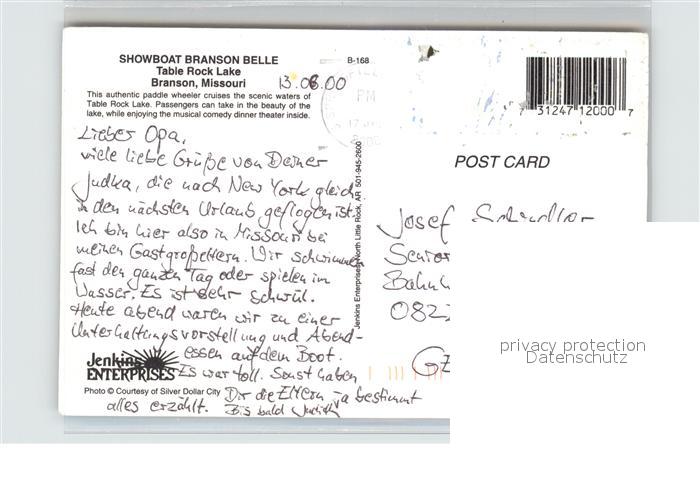 SHOWBOAT BRANSON BELLE
Table Rock Lake
Branson, Missouri
This authentic paddle wheeler cruises the scenic waters of
Table Rock Lake. Passengers can take in the beauty of the
lake, while enjoying the musical comedy dinner theater inside.
B-168
13.08.00
PM
Lieber Opa,
viele liebe Grüße von Deiner
Judka, die nach New York gleich
in den nächsten Urlaub geflogen ist.
Ich bin hier also in Missouri bei
meinen Gastgroßeltern. Wir schwimmen
fast den ganzen Tag oder spielen im
Wasser. Es ist sehr schwül.
Heute abend waren wir zu einer
Unterhaltungsvorstellung und Abend-
essen auf dem Boot.
Es war toll. Sonst haben
Dir die Eltern ja bestimmt
alles erzählt. Bis bald Judith
Jenkins
ENTERPRISES
Photo © Courtesy of Silver Dollar City
Jenkins Enterprises, North Little Rock, AR 501-945-2600
7 31247 12000 7
POST CARD
Josef
Senior
Bahnh
082
privacy protection
Datenschutz